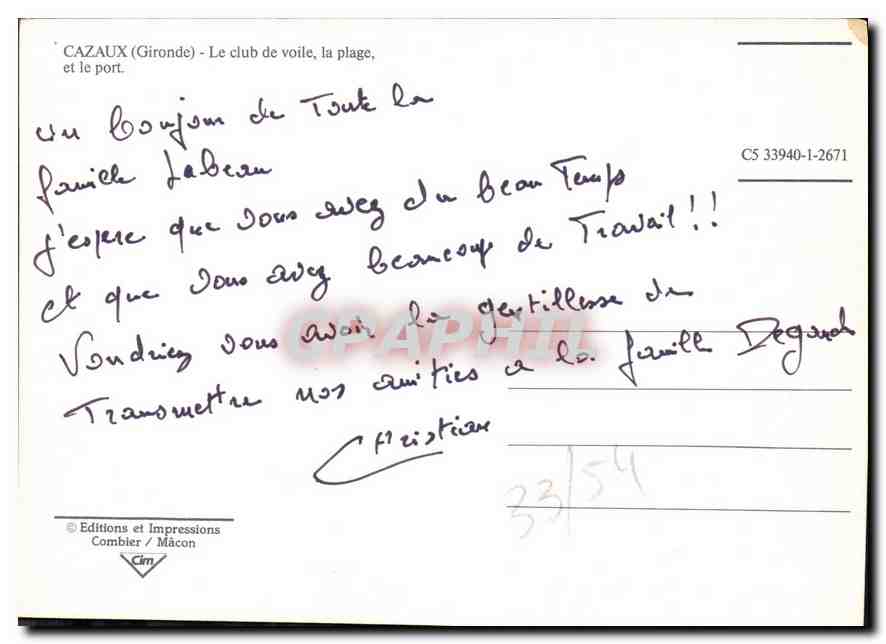 CAZAUX (Gironde) - Le club de voile, la plage,
et le port.
C5 33940-1-2671
un bonjour de Toute la
famille Labeau
J'espere que vous avez du beau Temps
et que vous avez beaucoup de Travail!!
Voudriez vous avoir la gentillesse de
Transmettre nos amities a la famille Degand
Christian
33/54
© Editions et Impressions
Combier / Mâcon
Cim
CPAPHIL